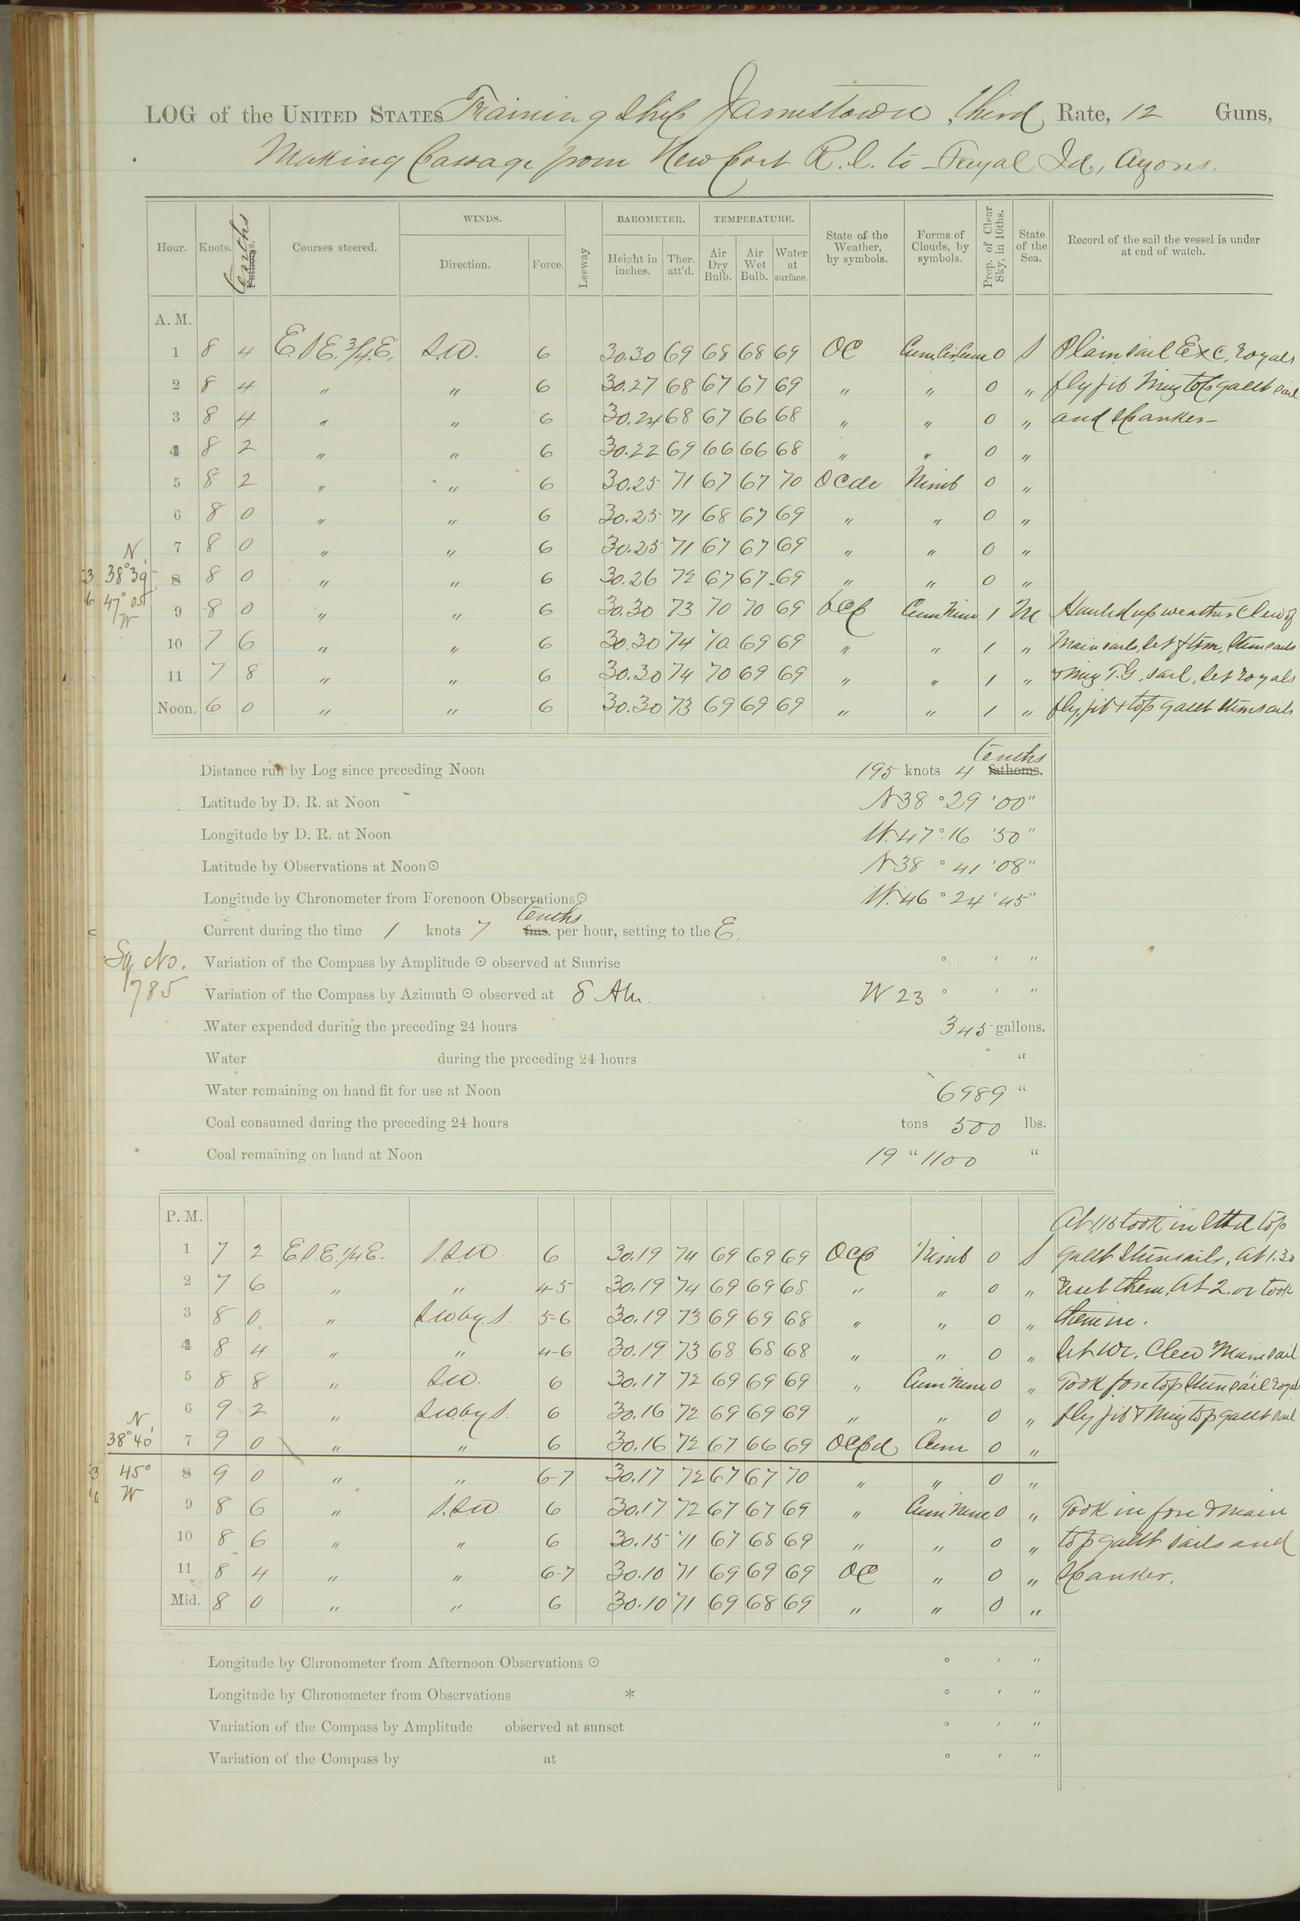 LOG of the UNITED STATES Training Ship Jamestown, third Rate, 12 Guns,
Making Passage from New Port R.I. to Fayal Id., Azores.
Hour. Knots. tenths Fathoms. Courses steered. WINDS. Direction. Force. Leeway BAROMETER. Height in inches. Ther. att'd. TEMPERATURE. Air Dry Bulb. Air Wet Bulb. Water at surface. State of the Weather, by symbols. Forms of Clouds, by symbols. Prop. of Clear Sky, in 10ths. State of the Sea. Record of the sail the vessel is under at end of watch.
A. M.
1 8 4 E.S.E.3/4E. S.W. 6 30.30 69 68 68 69 OC Cum Cir Cum 0 S Plain sail Exc. royals
2 8 4 " " 6 30.27 68 67 67 69 " " 0 " fly jib Miz top gallt sail
3 8 4 " " 6 30.24 68 67 66 68 " " 0 " and Spanker
4 8 2 " " 6 30.22 69 66 66 68 " " 0 "
5 8 2 " " 6 30.25 71 67 67 70 Nimb 0 "
6 8 0 " " 6 30.25 71 68 67 69 " " 0 "
7 8 0 " " 6 30.25 71 67 67 69 " " 0 "
N
38°39'
8 8 0 " " 6 30.26 72 67 67 69 " " 0 "
47°05'
W
9 8 0 " " 6 30.30 73 70 70 69 bcp Cum Nim 1 M Hauled up weather Clew of
10 7 6 " " 6 30.30 74 70 69 69 " " 1 " Main sail, set Stun sails
11 7 8 " " 6 30.30 74 70 69 69 " " 1 " & Miz T.G. sail, Set royals
Noon. 6 0 " " 6 30.30 73 69 69 69 " " 1 " fly jib & top gallt Stunsails
Distance run by Log since preceding Noon 195 knots 4 tenths fathoms.
Latitude by D. R. at Noon N 38 ° 29 ' 00 "
Longitude by D. R. at Noon W. 47 ° 16 ' 50 "
Latitude by Observations at Noon ☉ N 38 ° 41 ' 08 "
Longitude by Chronometer from Forenoon Observations ☉ W. 46 ° 24 ' 45 "
Current during the time 1 knots 7 tenths fms. per hour, setting to the E.
Variation of the Compass by Amplitude ☉ observed at Sunrise ° ' "
Sq No.
785
Variation of the Compass by Azimuth ☉ observed at 8 AM. W 23 ° ' "
Water expended during the preceding 24 hours 345 gallons.
Water during the preceding 24 hours "
Water remaining on hand fit for use at Noon 6989 "
Coal consumed during the preceding 24 hours tons 500 lbs.
Coal remaining on hand at Noon 19 " 1100 "
P. M.
At 1.15 took in Stbd top
1 7 2 E S E 1/4 E. S.S.W. 6 30.19 74 69 69 69 OCp Nimb 0 S gallt Stunsails, At 1.30
2 7 6 " " 4-5 30.19 74 69 69 68 " " 0 " reset them. At 2.00 took
3 8 0 " S.W. by S. 5-6 30.19 73 69 69 68 " " 0 " them in.
4 8 4 " " 4-6 30.19 73 68 68 68 " " 0 " Set We. Clew Main sail
5 8 8 " S.W. 6 30.17 72 69 69 69 " Cum Nim 0 " Took fore top Stun sail royals
6 9 2 " S.W. by S 6 30.16 72 69 69 69 " " 0 " fly jib & Miz top gallt sail
N
38°40'
7 9 0 " " 6 30.16 72 67 66 69 OCpd Cum 0 "
45°
W
8 9 0 " " 6-7 30.17 72 67 67 70 " " 0 "
9 8 6 " S.S.W. 6 30.17 72 67 67 69 " Cum Nim 0 " Took in fore & main
10 8 6 " " 6 30.15 71 67 68 69 " " 0 " top gallt sails and
11 8 4 " " 6-7 30.10 71 69 69 69 OC " 0 " Spanker.
Mid. 8 0 " " 6 30.10 71 69 68 69 " " 0 "
Longitude by Chronometer from Afternoon Observations ☉ ° ' "
Longitude by Chronometer from Observations * ° ' "
Variation of the Compass by Amplitude observed at sunset ° ' "
Variation of the Compass by at ° ' "